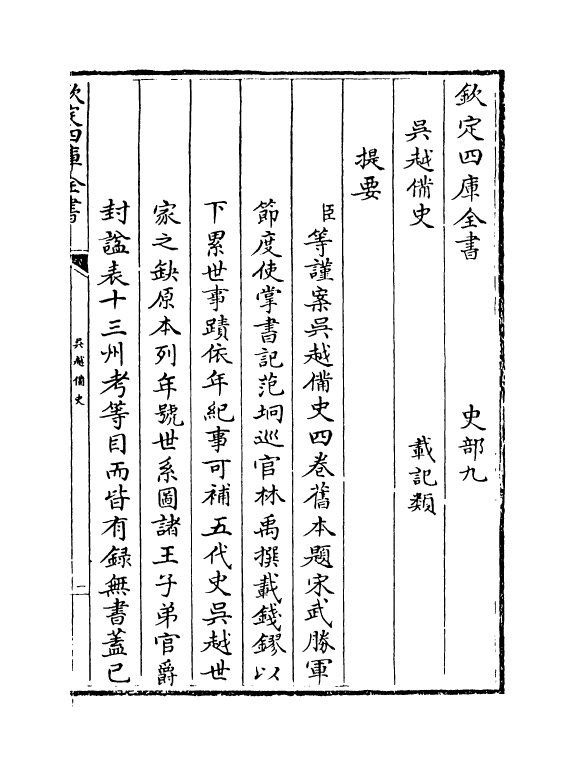 欽定四庫全書　史部九
吳越備史　載記類
提要
臣等謹案吳越備史四卷舊本題宋武勝軍
節度使掌書記范坰巡官林禹撰載錢鏐以
下累世事蹟依年紀事可補五代史吳越世
家之缺原本列年號世系圖諸王子弟官爵
封諡表十三州考等目而皆有錄無書蓋已
欽定四庫全書
吳越備史
一